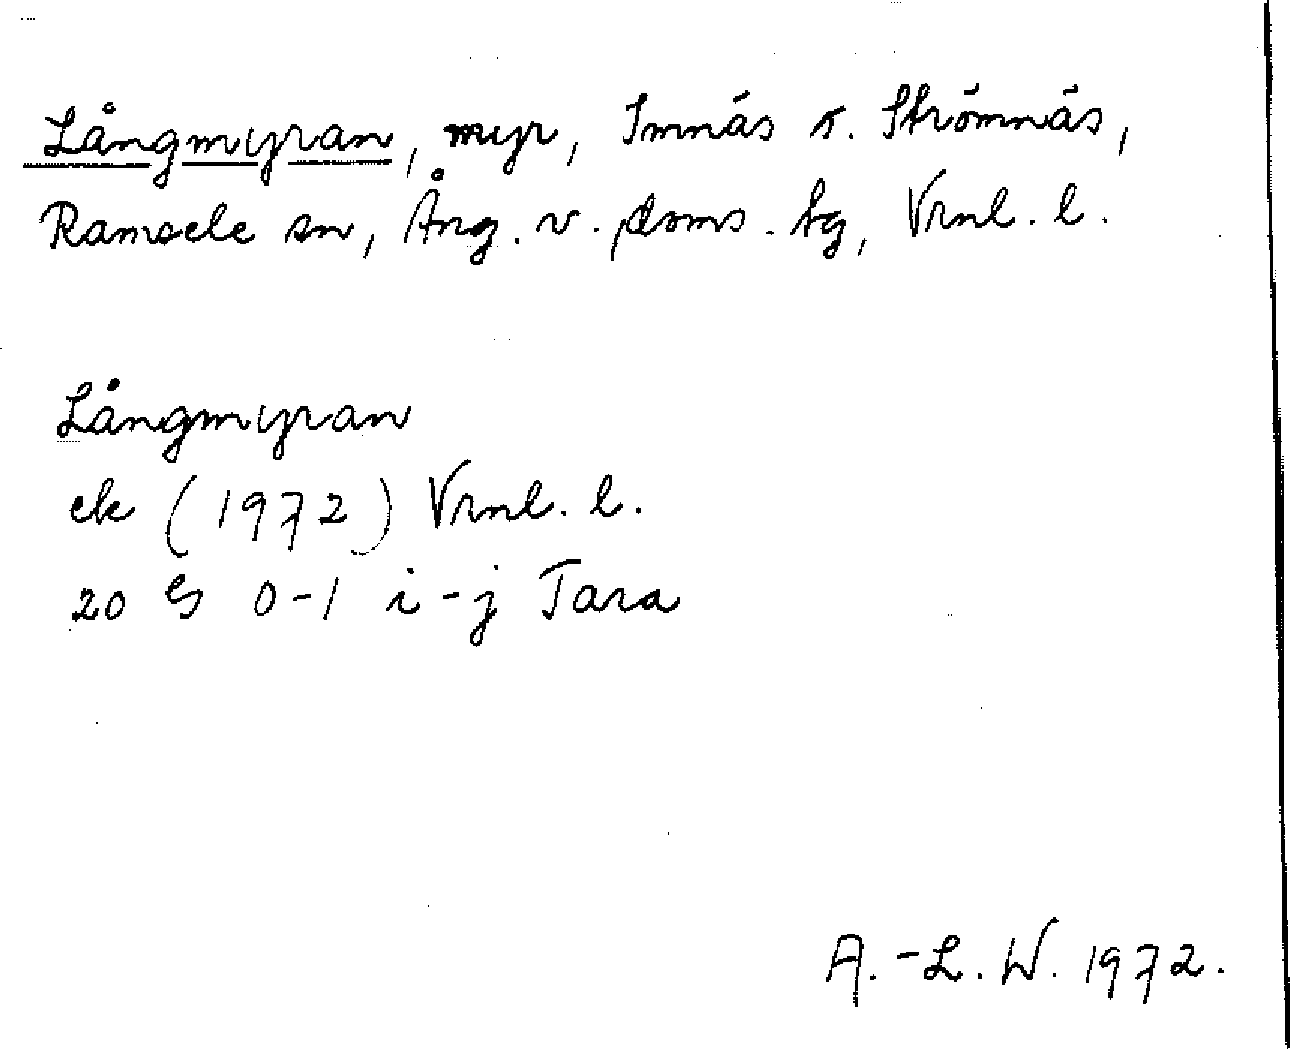 Långmyran, myr, Imnäs o. Strömnäs,
Ramsele sn, Ång. v. doms. tg, Vrnl. l.
Långmyran
ek (1972) Vrnl. l.
20 G 0-1 i-j Tara
A.-L. W. 1972.